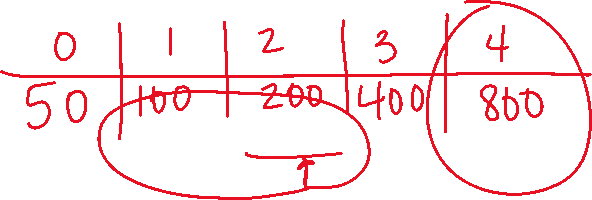 0 1 2 3 4
50 100 200 400 800